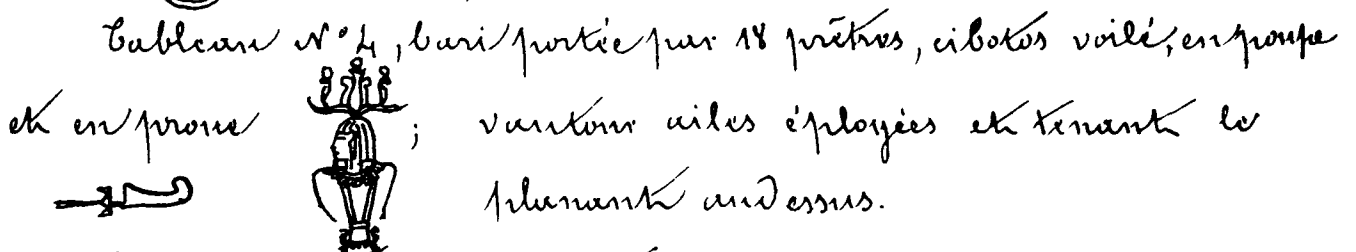 Tableau N° 4, bari portée par 18 prêtres, cibotos voilé, en poupe
et en proue ; vautour ailes éployées et tenant le
planant audessus.